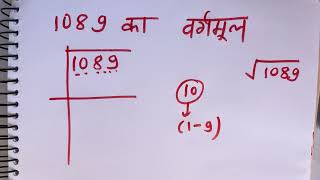 1089 का वर्गमूल
1089
√1089
10
(1-9)